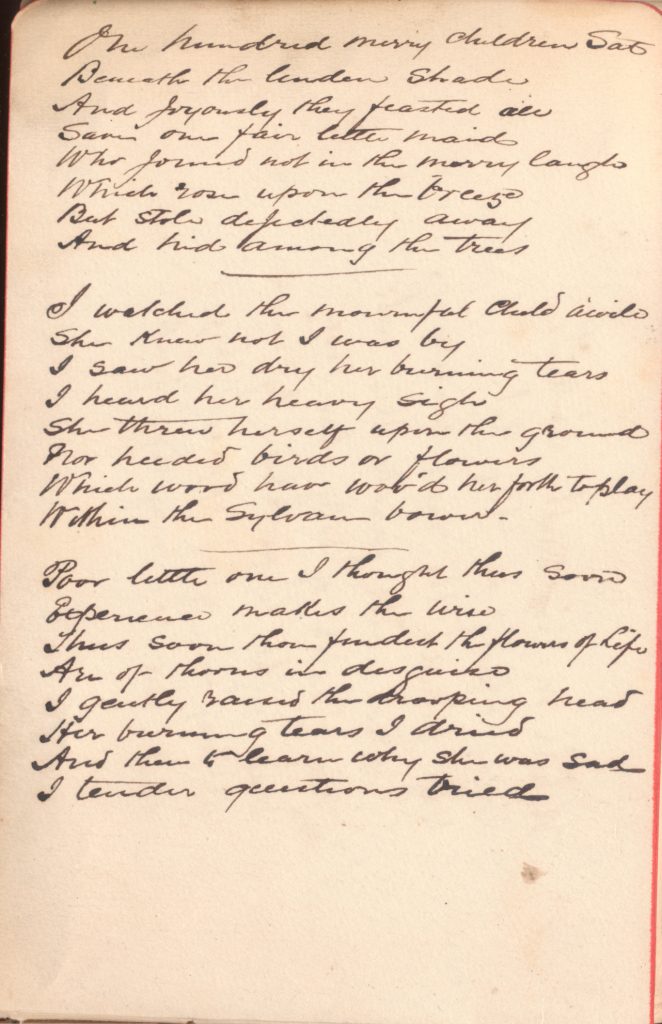 One hundred merry children Sat
Beneath the linden Shade
And Joyously they feasted all
Save one fair little maid
Who Joined not in the merry laugh
Which rose upon the breeze
But Stole dejectedly away
And hid among the trees
I watched the mournful Child awile
She Knew not I was by
I saw her dry her burning tears
I heard her heavy Sigh
She threw herself upon the ground
Nor heeded birds or flowers
Which would have woo'd her forth to play
Within the Sylvan bower-
Poor little one I thought thus soon
Experience makes the wise
Thus soon thou findest the flowers of Life
Are of thorns in disguise
I gently raised the drooping head
Her burning tears I dried
And then to learn why She was sad
I tender questions tried